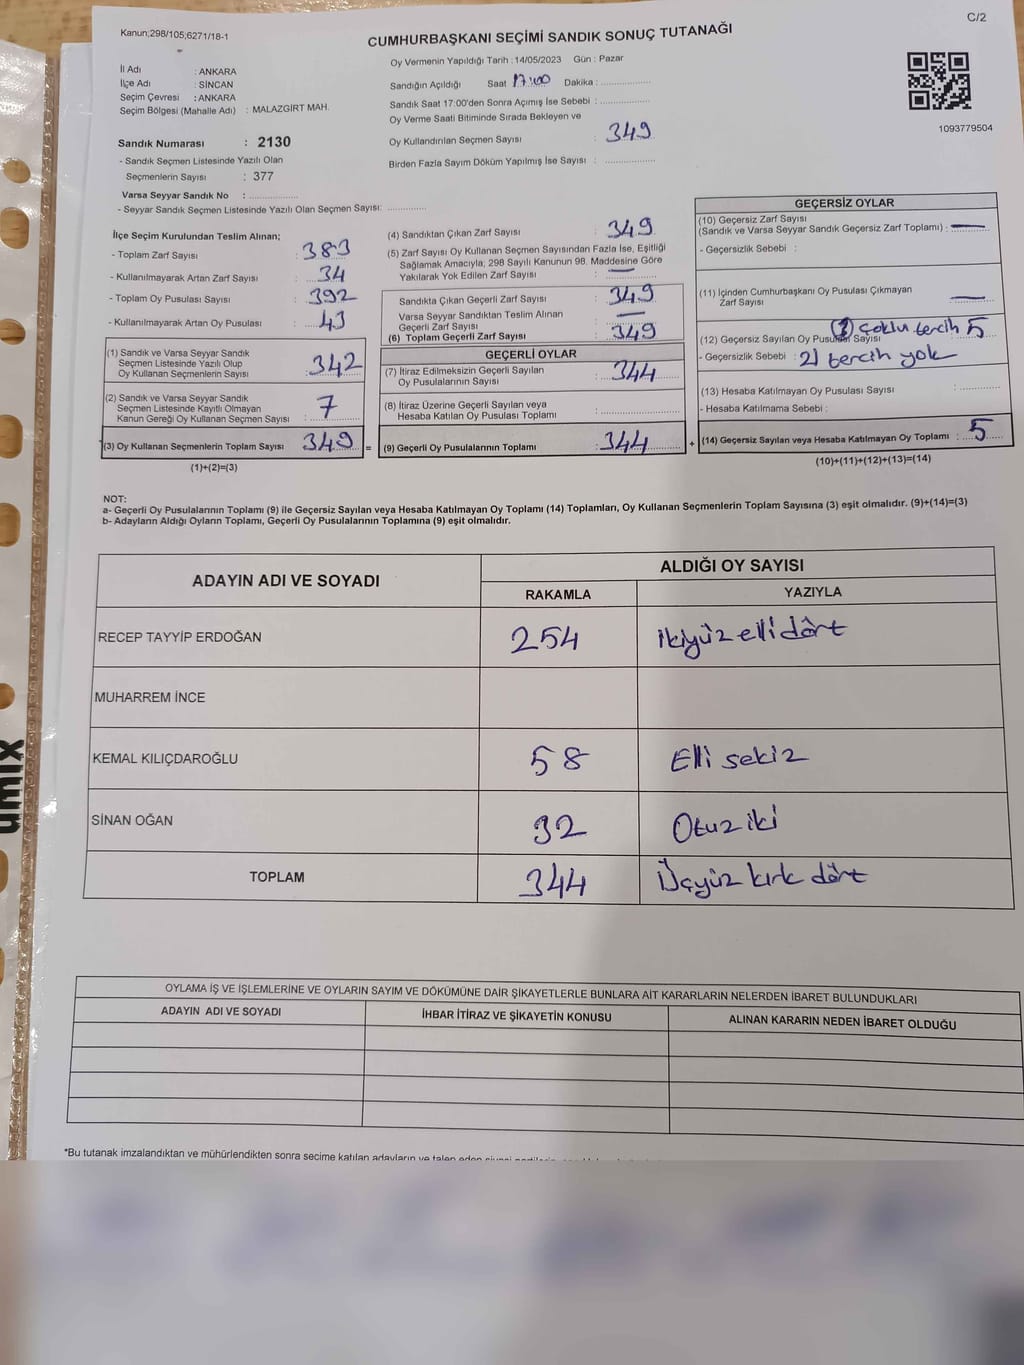 C/2
Kanun;298/105;6271/18-1
CUMHURBAŞKANI SEÇİMİ SANDIK SONUÇ TUTANAĞI
İl Adı : ANKARA
İlçe Adı : SİNCAN
Seçim Çevresi : ANKARA
Seçim Bölgesi (Mahalle Adı) : MALAZGİRT MAH.
Sandık Numarası : 2130
- Sandık Seçmen Listesinde Yazılı Olan
Seçmenlerin Sayısı : 377
Varsa Seyyar Sandık No : ............
- Seyyar Sandık Seçmen Listesinde Yazılı Olan Seçmen Sayısı: ............
Oy Vermenin Yapıldığı Tarih : 14/05/2023 Gün : Pazar
Sandığın Açıldığı Saat 17:00 Dakika : ............
Sandık Saat 17:00'den Sonra Açımış İse Sebebi : ............
Oy Verme Saati Bitiminde Sırada Bekleyen ve
Oy Kullandırılan Seçmen Sayısı : 349
Birden Fazla Sayım Döküm Yapılmış İse Sayısı : ............
1093779504
İlçe Seçim Kurulundan Teslim Alınan;
- Toplam Zarf Sayısı : 383
- Kullanılmayarak Artan Zarf Sayısı : 34
- Toplam Oy Pusulası Sayısı : 392
- Kullanılmayarak Artan Oy Pusulası : 43
(1) Sandık ve Varsa Seyyar Sandık
Seçmen Listesinde Yazılı Olup
Oy Kullanan Seçmenlerin Sayısı : 342
(2) Sandık ve Varsa Seyyar Sandık
Seçmen Listesinde Kayıtlı Olmayan
Kanun Gereği Oy Kullanan Seçmen Sayısı : 7
(3) Oy Kullanan Seçmenlerin Toplam Sayısı 349 =
(1)+(2)=(3)
(4) Sandıktan Çıkan Zarf Sayısı : 349
(5) Zarf Sayısı Oy Kullanan Seçmen Sayısından Fazla İse, Eşitliği
Sağlamak Amacıyla; 298 Sayılı Kanunun 98. Maddesine Göre
Yakılarak Yok Edilen Zarf Sayısı : —
Sandıkta Çıkan Geçerli Zarf Sayısı : 349
Varsa Seyyar Sandıktan Teslim Alınan
Geçerli Zarf Sayısı : —
(6) Toplam Geçerli Zarf Sayısı : 349
GEÇERLİ OYLAR
(7) İtiraz Edilmeksizin Geçerli Sayılan
Oy Pusulalarının Sayısı : 344
(8) İtiraz Üzerine Geçerli Sayılan veya
Hesaba Katılan Oy Pusulası Toplamı : ............
(9) Geçerli Oy Pusulalarının Toplamı : 344 +
GEÇERSİZ OYLAR
(10) Geçersiz Zarf Sayısı
(Sandık ve Varsa Seyyar Sandık Geçersiz Zarf Toplamı) : —
- Geçersizlik Sebebi :
(11) İçinden Cumhurbaşkanı Oy Pusulası Çıkmayan
Zarf Sayısı : —
(12) Geçersiz Sayılan Oy Pusulası Sayısı çoklu tercih 5
- Geçersizlik Sebebi : 2) tercih yok
(13) Hesaba Katılmayan Oy Pusulası Sayısı : ............
- Hesaba Katılmama Sebebi :
(14) Geçersiz Sayılan veya Hesaba Katılmayan Oy Toplamı : 5
(10)+(11)+(12)+(13)=(14)
NOT:
a- Geçerli Oy Pusulalarının Toplamı (9) ile Geçersiz Sayılan veya Hesaba Katılmayan Oy Toplamı (14) Toplamları, Oy Kullanan Seçmenlerin Toplam Sayısına (3) eşit olmalıdır. (9)+(14)=(3)
b- Adayların Aldığı Oyların Toplamı, Geçerli Oy Pusulalarının Toplamına (9) eşit olmalıdır.
ADAYIN ADI VE SOYADI ALDIĞI OY SAYISI
RAKAMLA YAZIYLA
RECEP TAYYİP ERDOĞAN 254 ikiyüzellidört
MUHARREM İNCE
KEMAL KILIÇDAROĞLU 58 Elli sekiz
SİNAN OĞAN 32 Otuz iki
TOPLAM 344 Üçyüz kırk dört
OYLAMA İŞ VE İŞLEMLERİNE VE OYLARIN SAYIM VE DÖKÜMÜNE DAİR ŞİKAYETLERLE BUNLARA AİT KARARLARIN NELERDEN İBARET BULUNDUKLARI
ADAYIN ADI VE SOYADI İHBAR İTİRAZ VE ŞİKAYETİN KONUSU ALINAN KARARIN NEDEN İBARET OLDUĞU
*Bu tutanak imzalandıktan ve mühürlendikten sonra seçime katılan adayların ve talep eden
umix